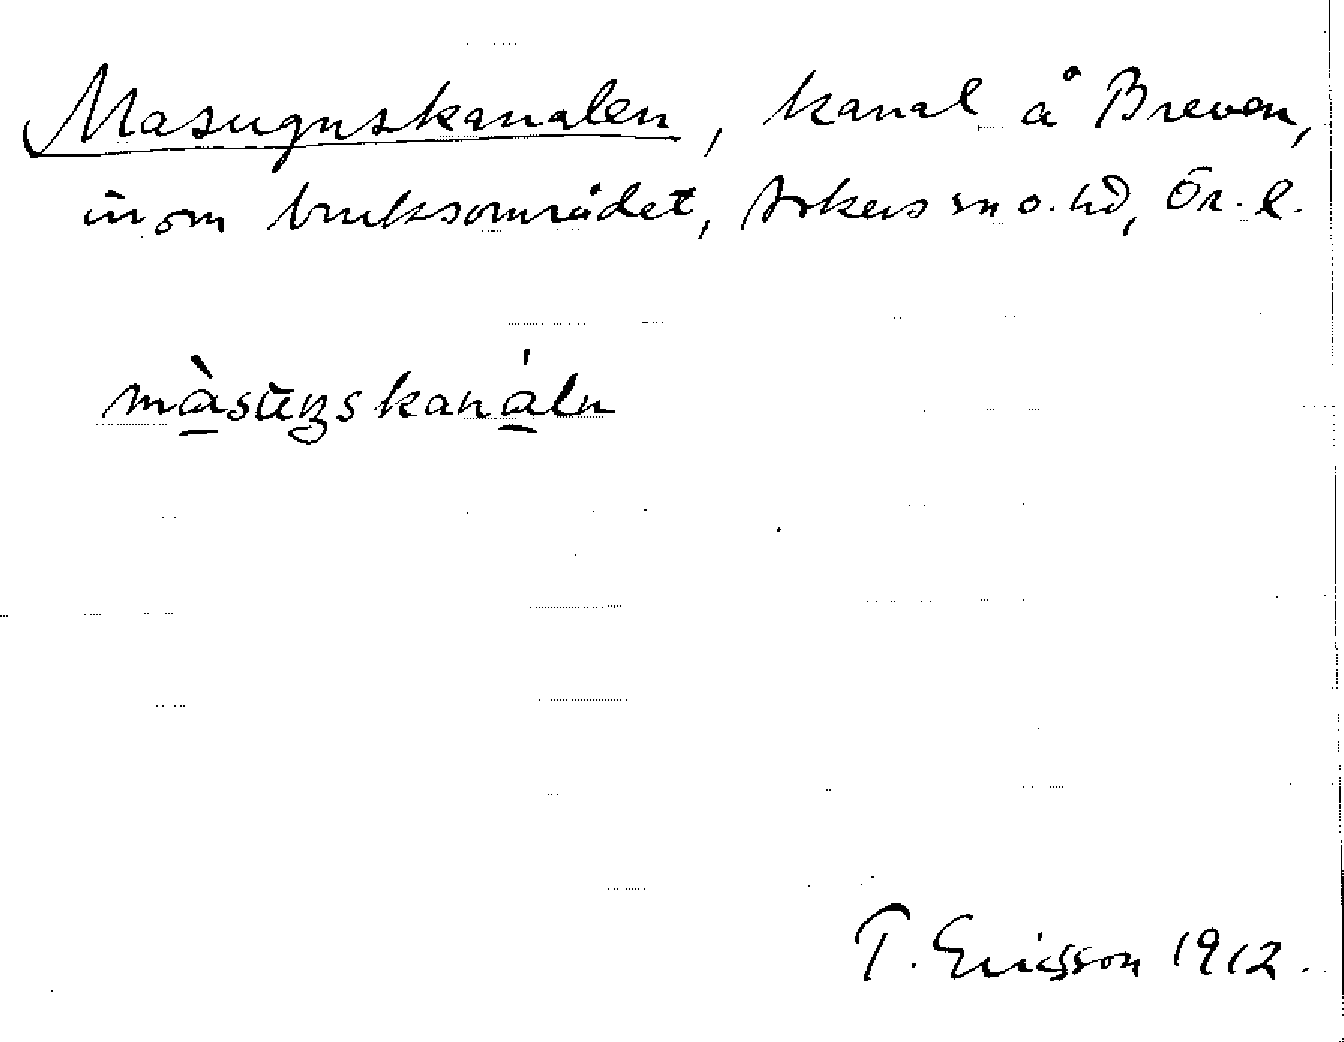 Masugnskanalen, kanal å Breven,
inom bruksområdet, Askers sn o. hd, Ör. l.
màsuŋskanáln
T. Ericsson 1912.